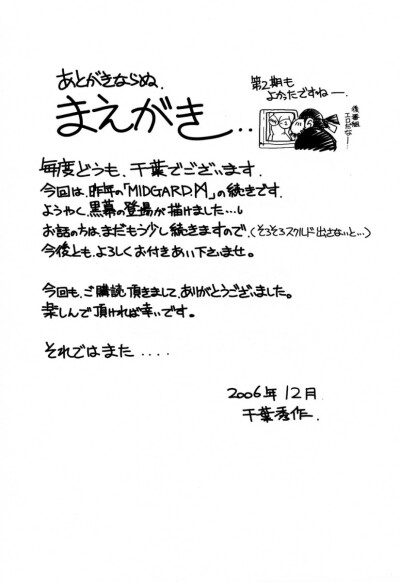 あとがきならぬ、
まえがき・・
第2期も
よかったですねー、
後番組
エロだなー!
毎度どうも、千葉でございます。
今回は、昨年の「MIDGARD」の続きです。
ようやく、黒幕の登場が描けました…。
お話の方は、まだもう少し続きますので、(そろそろスクルド出さないと…)
今後とも、よろしくお付きあい下さいませ。
今回も、ご購読頂きまして、ありがとうございました。
楽しんで頂ければ幸いです。
それではまた・・・・
2006年12月
千葉秀作.